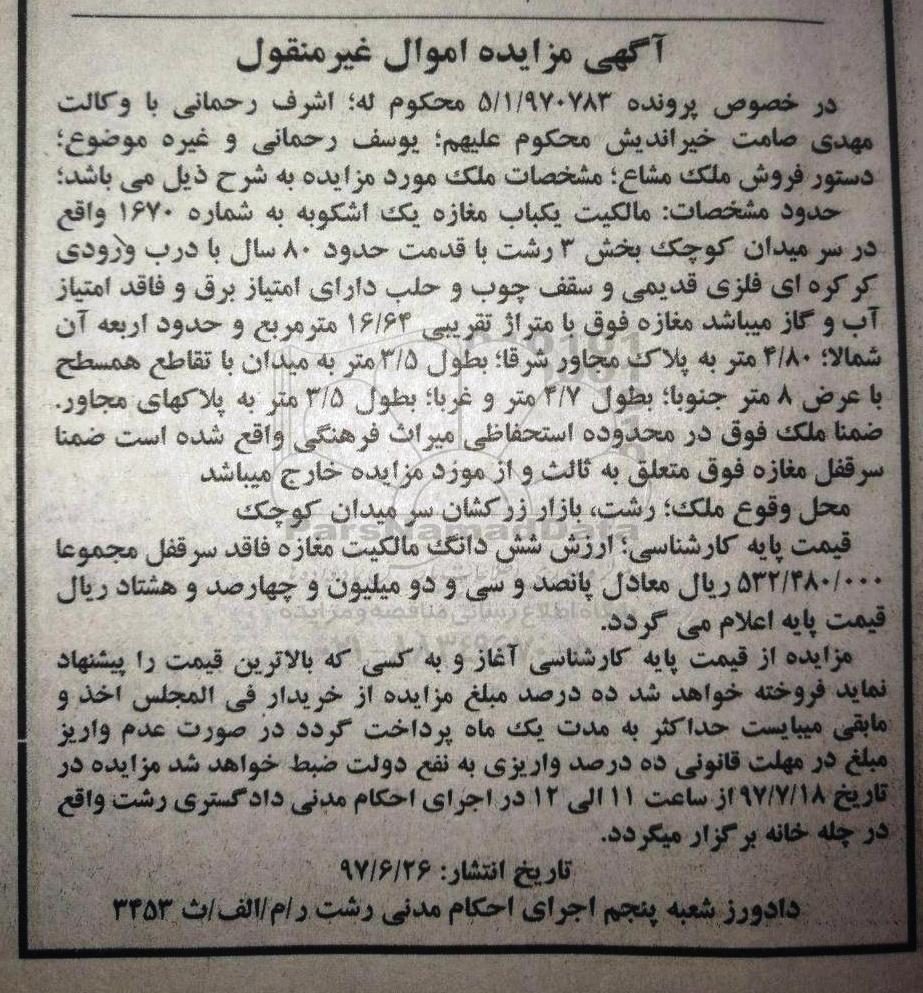 آگهی مزایده اموال غیرمنقول
در خصوص پرونده ۵/۱/۹۷۰۷۸۳ محکوم له؛ اشرف رحمانی با وکالت
مهدی صامت خیراندیش محکوم علیهم؛ یوسف رحمانی و غیره موضوع؛
دستور فروش ملک مشاع؛ مشخصات ملک مورد مزایده به شرح ذیل می باشد؛
حدود مشخصات: مالکیت یکباب مغازه یک اشکوبه به شماره ۱۶۷۰ واقع
در سر میدان کوچک بخش ۳ رشت با قدمت حدود ۸۰ سال با درب ورودی
کرکره ای فلزی قدیمی و سقف چوب و حلب دارای امتیاز برق و فاقد امتیاز
آب و گاز میباشد مغازه فوق با متراژ تقریبی ۱۶/۶۴ مترمربع و حدود اربعه آن
شمالا؛ ۴/۸۰ متر به پلاک مجاور شرقا؛ بطول ۳/۵ متر به میدان با تقاطع همسطح
با عرض ۸ متر جنوبا؛ بطول ۴/۷ متر و غربا؛ بطول ۳/۵ متر به پلاکهای مجاور.
ضمنا ملک فوق در محدوده استحفاظی میراث فرهنگی واقع شده است ضمنا
سرقفل مغازه فوق متعلق به ثالث و از مورد مزایده خارج میباشد
محل وقوع ملک؛ رشت، بازار زرکشان سر میدان کوچک
ParsNamadData
قیمت پایه کارشناسی؛ ارزش شش دانگ مالکیت مغازه فاقد سرقفل مجموعا
۵۳۲/۴۸۰/۰۰۰ ریال معادل پانصد و سی و دو میلیون و چهارصد و هشتاد ریال
پایگاه اطلاع رسانی مناقصه و مزایده
قیمت پایه اعلام می گردد.
مزایده از قیمت پایه کارشناسی آغاز و به کسی که بالاترین قیمت را پیشنهاد
نماید فروخته خواهد شد ده درصد مبلغ مزایده از خریدار فی المجلس اخذ و
مابقی میبایست حداکثر به مدت یک ماه پرداخت گردد در صورت عدم واریز
مبلغ در مهلت قانونی ده درصد واریزی به نفع دولت ضبط خواهد شد مزایده در
تاریخ ۹۷/۷/۱۸ از ساعت ۱۱ الی ۱۲ در اجرای احکام مدنی دادگستری رشت واقع
در چله خانه برگزار میگردد.
تاریخ انتشار: ۹۷/۶/۲۶
دادورز شعبه پنجم اجرای احکام مدنی رشت ر/م/الف/ث ۳۴۵۳